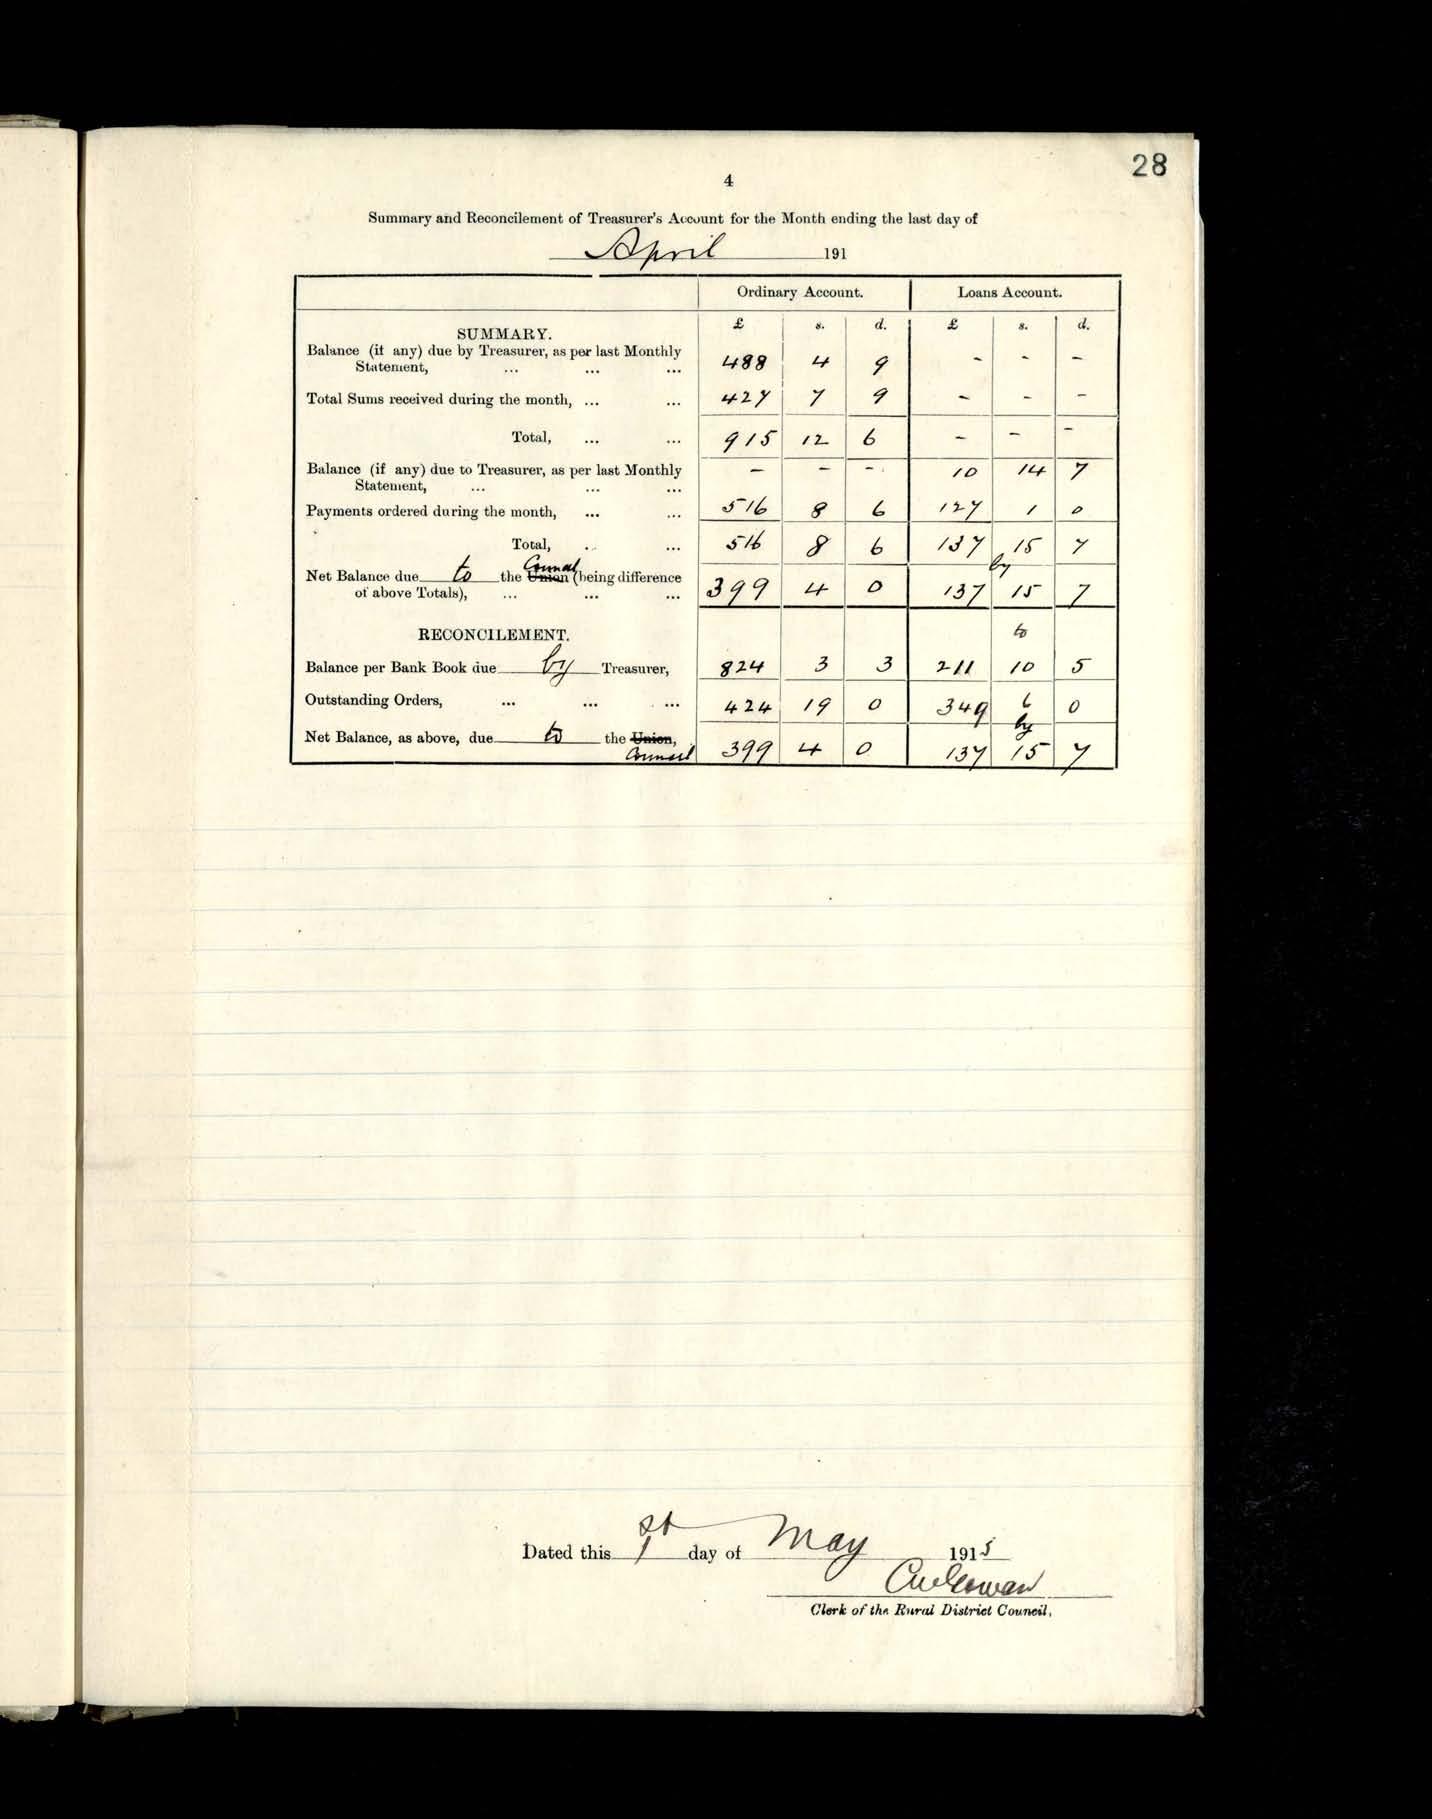 28
4
Summary and Reconcilement of Treasurer's Account for the Month ending the last day of
April 191
Ordinary Account. Loans Account.
£ s. d. £ s. d.
SUMMARY.
Balance (if any) due by Treasurer, as per last Monthly
Statement, ... ... ... 488 4 9 - - -
Total Sums received during the month, ... ... 427 7 9 - - -
Total, ... ... 915 12 6 - - -
Balance (if any) due to Treasurer, as per last Monthly - - - 10 14 7
Statement, ... ... ...
Payments ordered during the month, ... ... 516 8 6 127 1 0
Total, .. ... 516 8 6 137 15 7
Council by
Net Balance due to the Union (being difference
of above Totals), ... ... ... 399 4 0 137 15 7
RECONCILEMENT. to
Balance per Bank Book due by Treasurer, 824 3 3 211 10 5
Outstanding Orders, ... ... ... 424 19 0 349 6 0
by
Net Balance, as above, due to the Union, 399 4 0 137 15 7
Council
Dated this 1st day of May 1915
Clerk of the Rural District Council,